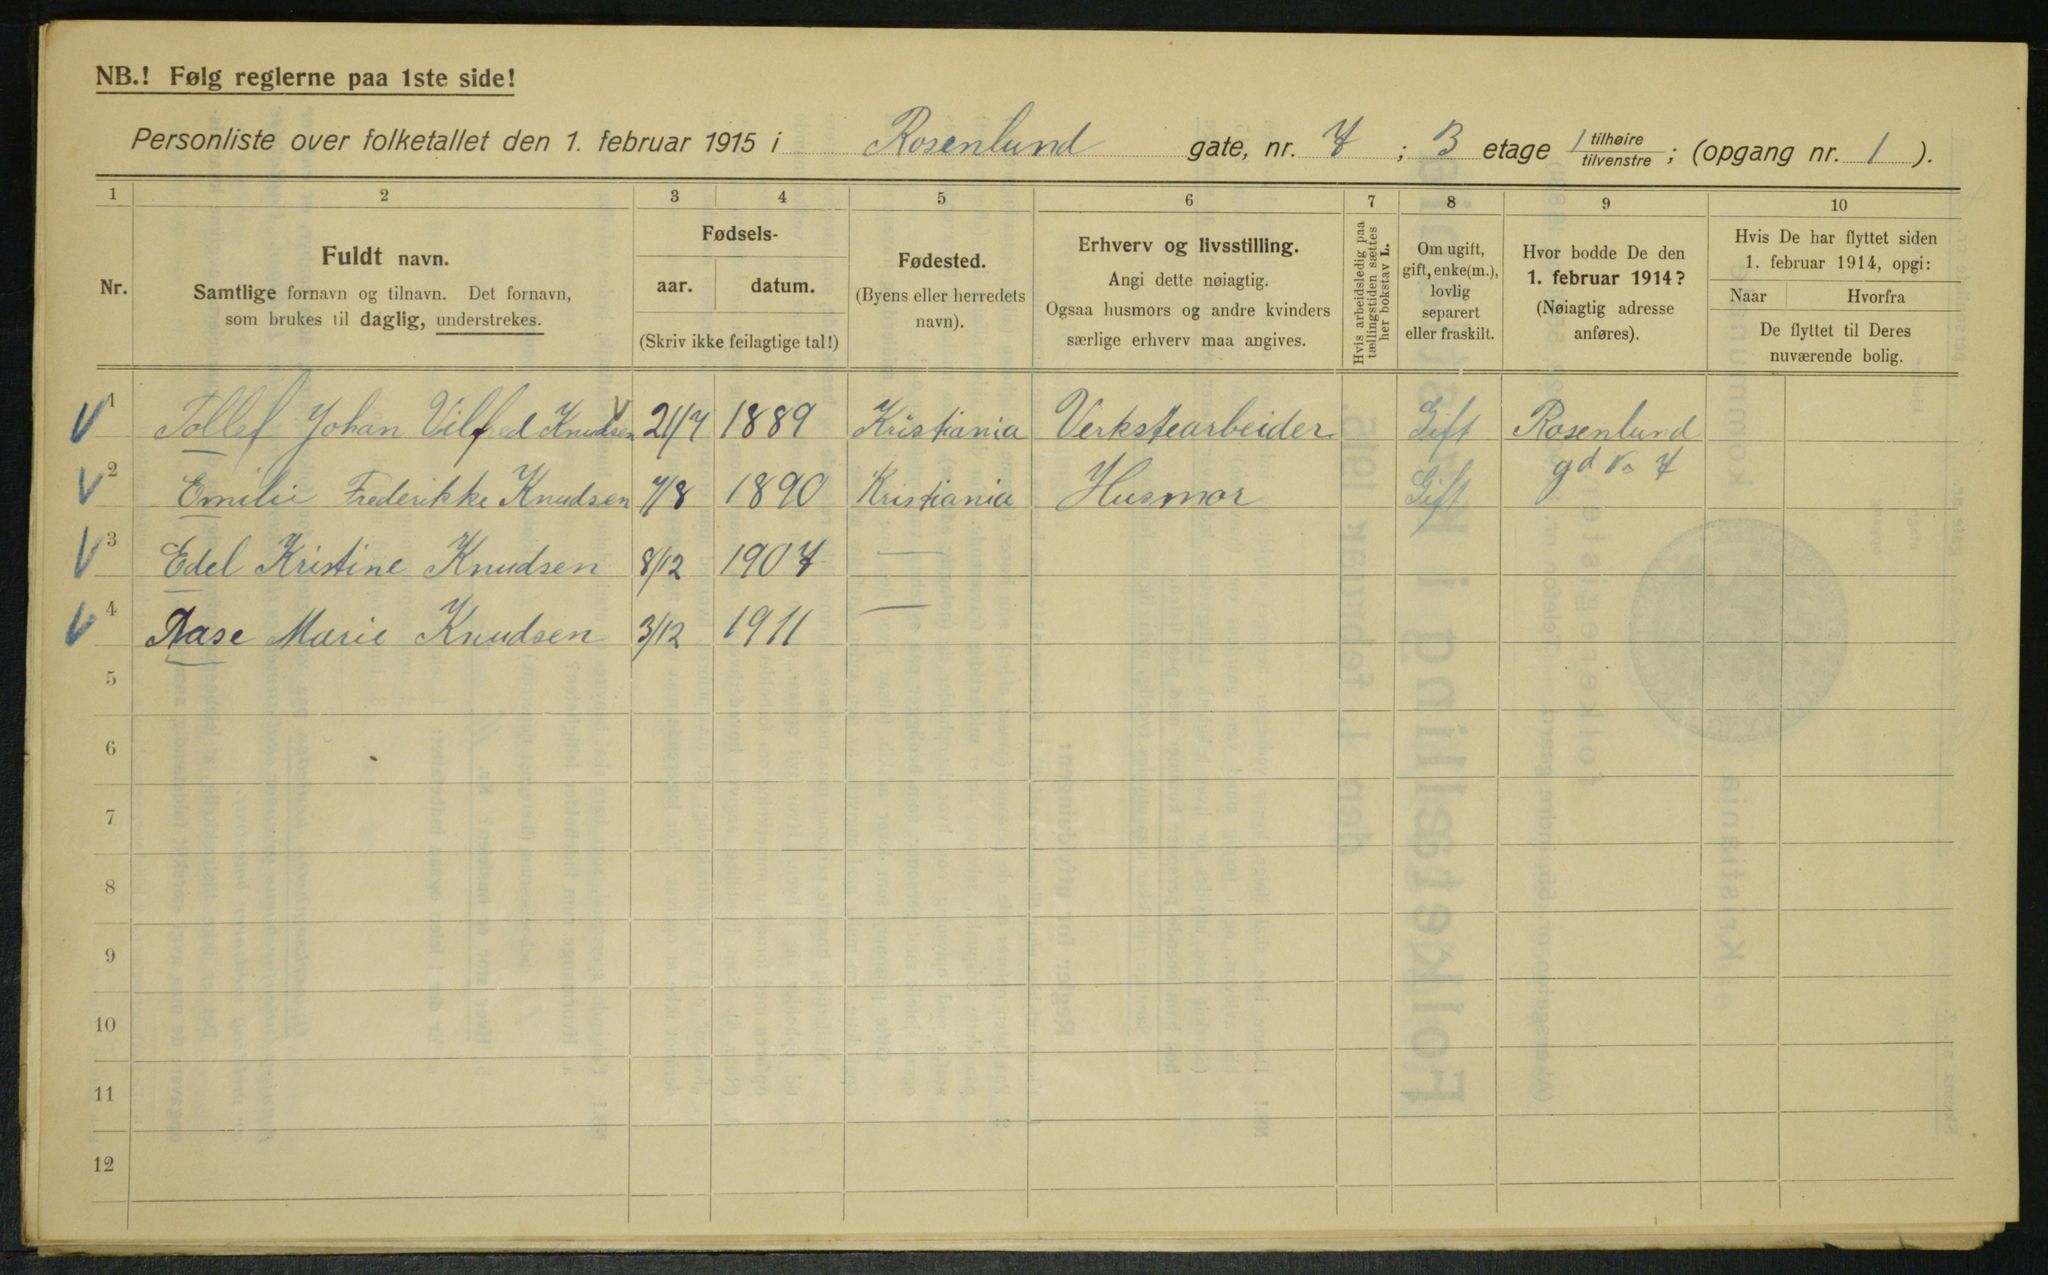 NB.! Følg reglerne paa 1ste side!
Personliste over folketallet den 1. februar 1915 i Rosenlund gate, nr. 7 ; 3 etage 1 tilhøire/tilvenstre ; (opgang nr. 1 ).
1 2 3 4 5 6 7 8 9 10
Nr.
Fuldt navn.
Samtlige fornavn og tilnavn. Det fornavn,
som brukes til daglig, understrekes.
Fødsels-
aar. datum.
(Skriv ikke feilagtige tal!)
Fødested.
(Byens eller herredets
navn).
Erhverv og livsstilling.
Angi dette nøiagtig.
Ogsaa husmors og andre kvinders
særlige erhverv maa angives.
Hvis arbeidsledig paa
tællingstiden sættes
her bokstav L.
Om ugift,
gift, enke(m.),
lovlig
separert
eller fraskilt.
Hvor bodde De den
1. februar 1914?
(Nøiagtig adresse
anføres).
Hvis De har flyttet siden
1. februar 1914, opgi:
Naar Hvorfra
De flyttet til Deres
nuværende bolig.
1 Tollef Johan Vilfred Knudsen 21/7 1889 Kristiania Verkstearbeider Gift Rosenlund
2 Emilie Frederikke Knudsen 7/8 1890 Kristiania Husmor Gift gd No 7
3 Edel Kristine Knudsen 8/12 1907 —
4 Aase Marie Knudsen 3/12 1911 —
5
6
7
8
9
10
11
12